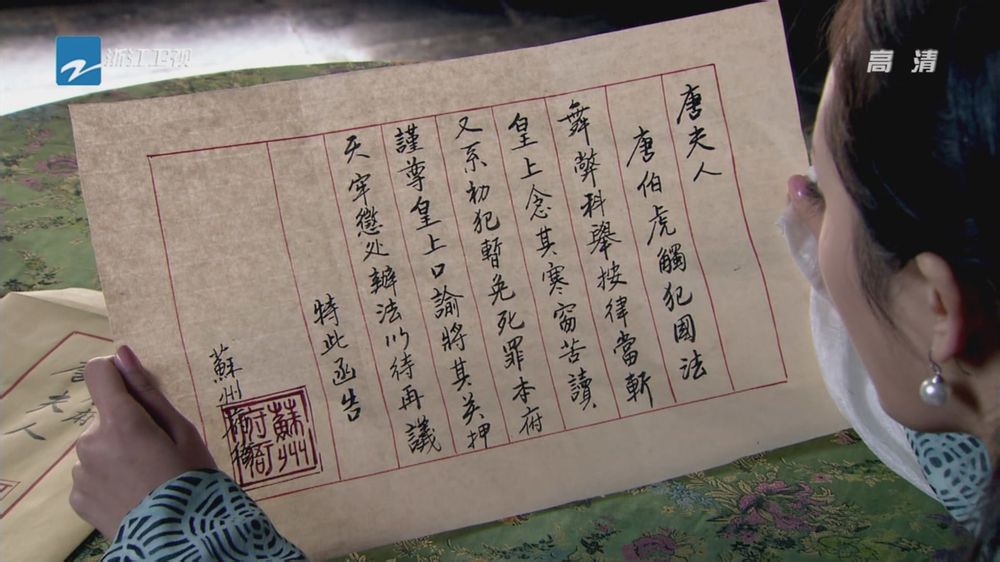 浙江卫视
高清
唐夫人
唐伯虎觸犯國法
舞弊科舉按律當斬
皇上念其寒窗苦讀
又系初犯暫免死罪本府
謹尊皇上口諭將其关押
天牢懲处辦法以待再議
特此函告
蘇州府衙
蘇州府衙